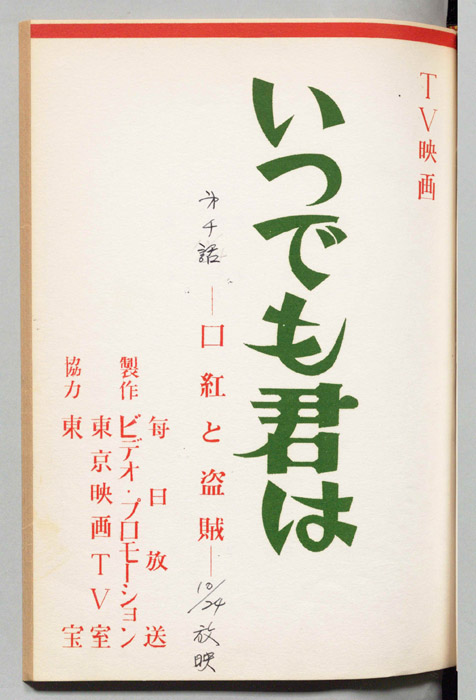 TV映画
いつでも君は
第4話
―口紅と盗賊―
10/24放映
製作
毎日放送
ビデオ・プロモーション
東京映画TV室
協力
東宝